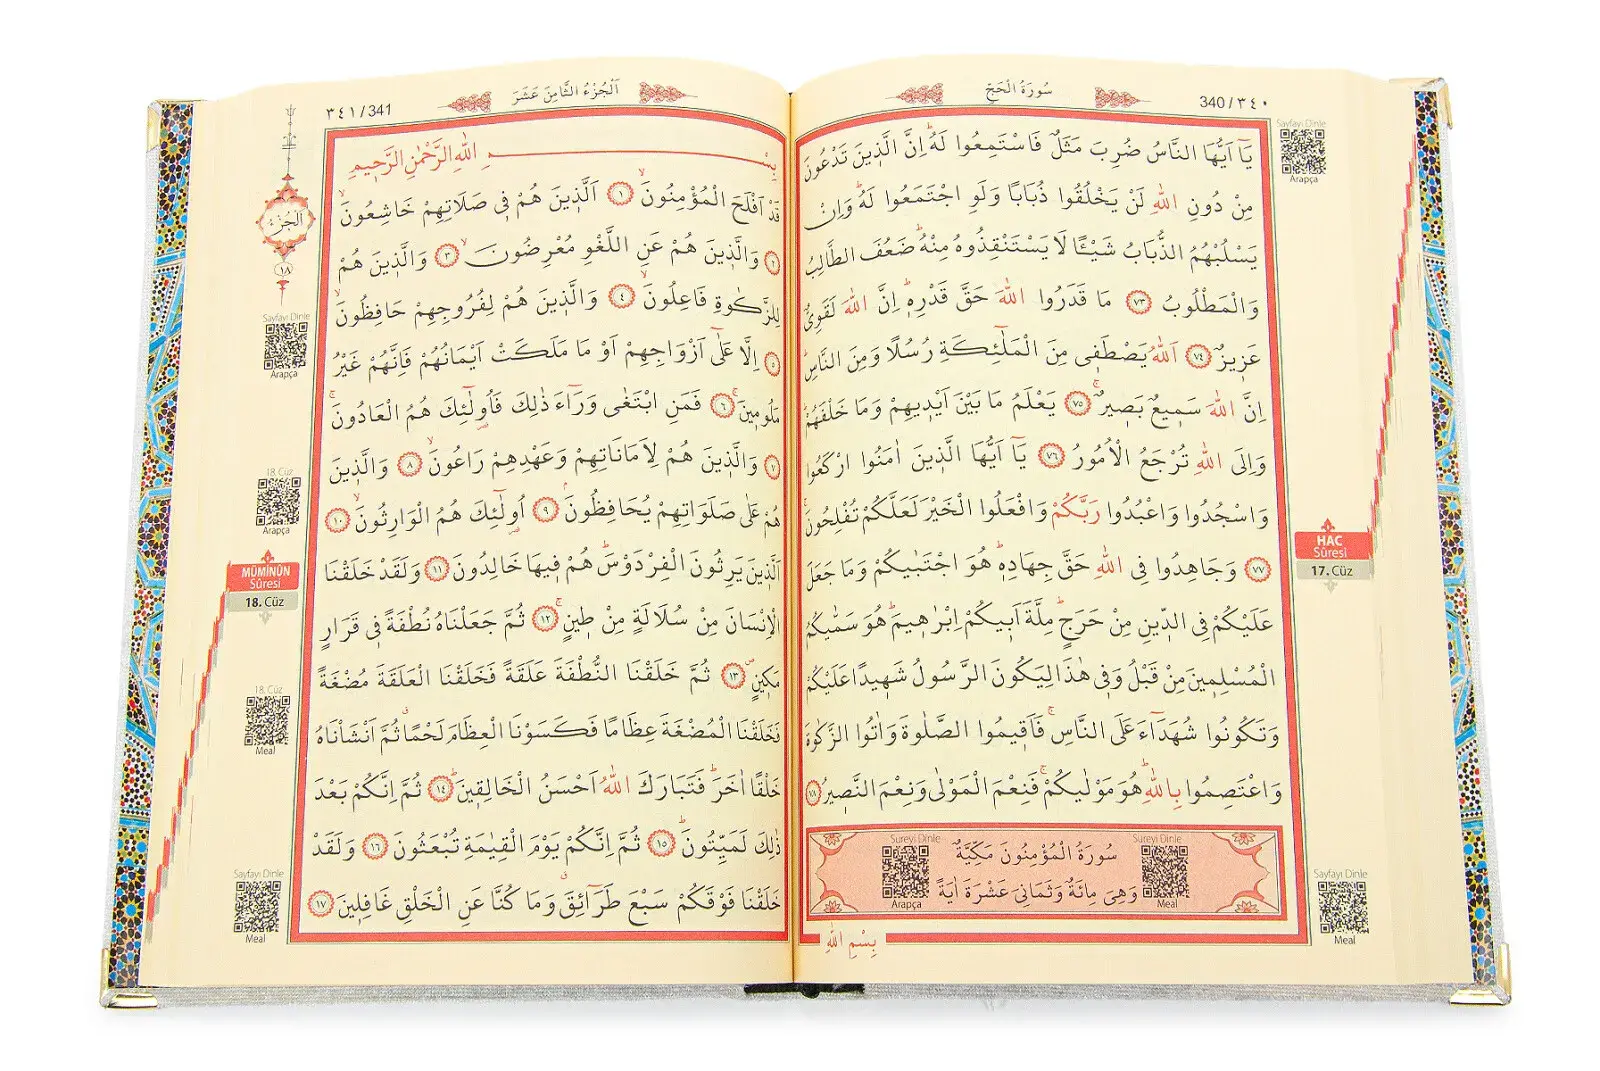 340/٣٤٠
سُورَةُ الْحَجِّ
Sayfayı Dinle
Arapça
يَٓا اَيُّهَا النَّاسُ ضُرِبَ مَثَلٌ فَاسْتَمِعُوا لَهُۜ اِنَّ الَّذ۪ينَ تَدْعُونَ
مِنْ دُونِ اللّٰهِ لَنْ يَخْلُقُوا ذُبَابًا وَلَوِ اجْتَمَعُوا لَهُۜ وَاِنْ
يَسْلُبْهُمُ الذُّبَابُ شَيْـًٔا لَا يَسْتَنْقِذُوهُ مِنْهُۜ ضَعُفَ الطَّالِبُ
وَالْمَطْلُوبُ ﴿٧٣﴾ مَا قَدَرُوا اللّٰهَ حَقَّ قَدْرِه۪ۜ اِنَّ اللّٰهَ لَقَوِيٌّ
عَز۪يزٌ ﴿٧٤﴾ اَللّٰهُ يَصْطَف۪ي مِنَ الْمَلٰٓئِكَةِ رُسُلًا وَمِنَ النَّاسِۜ
اِنَّ اللّٰهَ سَم۪يعٌ بَص۪يرٌۚ ﴿٧٥﴾ يَعْلَمُ مَا بَيْنَ اَيْد۪يهِمْ وَمَا خَلْفَهُمْۜ
وَاِلَى اللّٰهِ تُرْجَعُ الْاُمُورُ ﴿٧٦﴾ يَٓا اَيُّهَا الَّذ۪ينَ اٰمَنُوا ارْكَعُوا
وَاسْجُدُوا وَاعْبُدُوا رَبَّكُمْ وَافْعَلُوا الْخَيْرَ لَعَلَّكُمْ تُفْلِحُونَۚ
﴿٧٧﴾ وَجَاهِدُوا فِي اللّٰهِ حَقَّ جِهَادِه۪ۜ هُوَ اجْتَبٰيكُمْ وَمَا جَعَلَ
عَلَيْكُمْ فِي الدّ۪ينِ مِنْ حَرَجٍۜ مِلَّةَ اَب۪يكُمْ اِبْرٰه۪يمَۜ هُوَ سَمّٰيكُمُ
الْمُسْلِم۪ينَ مِنْ قَبْلُ وَف۪ي هٰذَا لِيَكُونَ الرَّسُولُ شَه۪يدًا عَلَيْكُمْ
وَتَكُونُوا شُهَدَٓاءَ عَلَى النَّاسِۚ فَاَق۪يمُوا الصَّلٰوةَ وَاٰتُوا الزَّكٰوةَ
وَاعْتَصِمُوا بِاللّٰهِۜ هُوَ مَوْلٰيكُمْۚ فَنِعْمَ الْمَوْلٰى وَنِعْمَ النَّص۪يرُ ﴿٧٨﴾
HAC
Sûresi
17. Cüz
Sûreyi Dinle
Meal
سُورَةُ الْمُؤْمِنُونَ مَكِّيَّةٌ
وَهِيَ مِائَةٌ وَثَمَانِيَ عَشْرَةَ اٰيَةً
Sûreyi Dinle
Arapça
Sayfayı Dinle
Meal
بِسْمِ اللّٰهِ
٣٤١/341
اَلْجُزْءُ الثَّامِنَ عَشَرَ
اَلْجُزْءُ
١٨
بِسْمِ اللّٰهِ الرَّحْمٰنِ الرَّح۪يمِ
قَدْ اَفْلَحَ الْمُؤْمِنُونَۙ ﴿١﴾ اَلَّذ۪ينَ هُمْ ف۪ي صَلَاتِهِمْ خَاشِعُونَۙ
﴿٢﴾ وَالَّذ۪ينَ هُمْ عَنِ اللَّغْوِ مُعْرِضُونَۙ ﴿٣﴾ وَالَّذ۪ينَ هُمْ
لِلزَّكٰوةِ فَاعِلُونَۙ ﴿٤﴾ وَالَّذ۪ينَ هُمْ لِفُرُوجِهِمْ حَافِظُونَۙ
﴿٥﴾ اِلَّا عَلٰٓى اَزْوَاجِهِمْ اَوْ مَا مَلَكَتْ اَيْمَانُهُمْ فَاِنَّهُمْ غَيْرُ
مَلُوم۪ينَۚ ﴿٦﴾ فَمَنِ ابْتَغٰى وَرَٓاءَ ذٰلِكَ فَاُو۬لٰٓئِكَ هُمُ الْعَادُونَۚ
﴿٧﴾ وَالَّذ۪ينَ هُمْ لِاَمَانَاتِهِمْ وَعَهْدِهِمْ رَاعُونَۙ ﴿٨﴾ وَالَّذ۪ينَ
هُمْ عَلٰى صَلَوَاتِهِمْ يُحَافِظُونَۢ ﴿٩﴾ اُو۬لٰٓئِكَ هُمُ الْوَارِثُونَۙ ﴿١٠﴾
اَلَّذ۪ينَ يَرِثُونَ الْفِرْدَوْسَۜ هُمْ ف۪يهَا خَالِدُونَ ﴿١١﴾ وَلَقَدْ خَلَقْنَا
الْاِنْسَانَ مِنْ سُلَالَةٍ مِنْ ط۪ينٍۚ ﴿١٢﴾ ثُمَّ جَعَلْنَاهُ نُطْفَةً ف۪ي قَرَارٍ
مَك۪ينٍۖ ﴿١٣﴾ ثُمَّ خَلَقْنَا النُّطْفَةَ عَلَقَةً فَخَلَقْنَا الْعَلَقَةَ مُضْغَةً
فَخَلَقْنَا الْمُضْغَةَ عِظَامًا فَكَسَوْنَا الْعِظَامَ لَحْمًا ثُمَّ اَنْشَاْنَاهُ
خَلْقًا اٰخَرَۜ فَتَبَارَكَ اللّٰهُ اَحْسَنُ الْخَالِق۪ينَۜ ﴿١٤﴾ ثُمَّ اِنَّكُمْ بَعْدَ
ذٰلِكَ لَمَيِّتُونَۜ ﴿١٥﴾ ثُمَّ اِنَّكُمْ يَوْمَ الْقِيٰمَةِ تُبْعَثُونَ ﴿١٦﴾ وَلَقَدْ
خَلَقْنَا فَوْقَكُمْ سَبْعَ طَرَٓائِقَۗ وَمَا كُنَّا عَنِ الْخَلْقِ غَافِل۪ينَ ﴿١٧﴾
Sayfayı Dinle
Arapça
18. Cüz
Arapça
MÜMİNÛN
Sûresi
18. Cüz
18. Cüz
Meal
Sayfayı Dinle
Meal